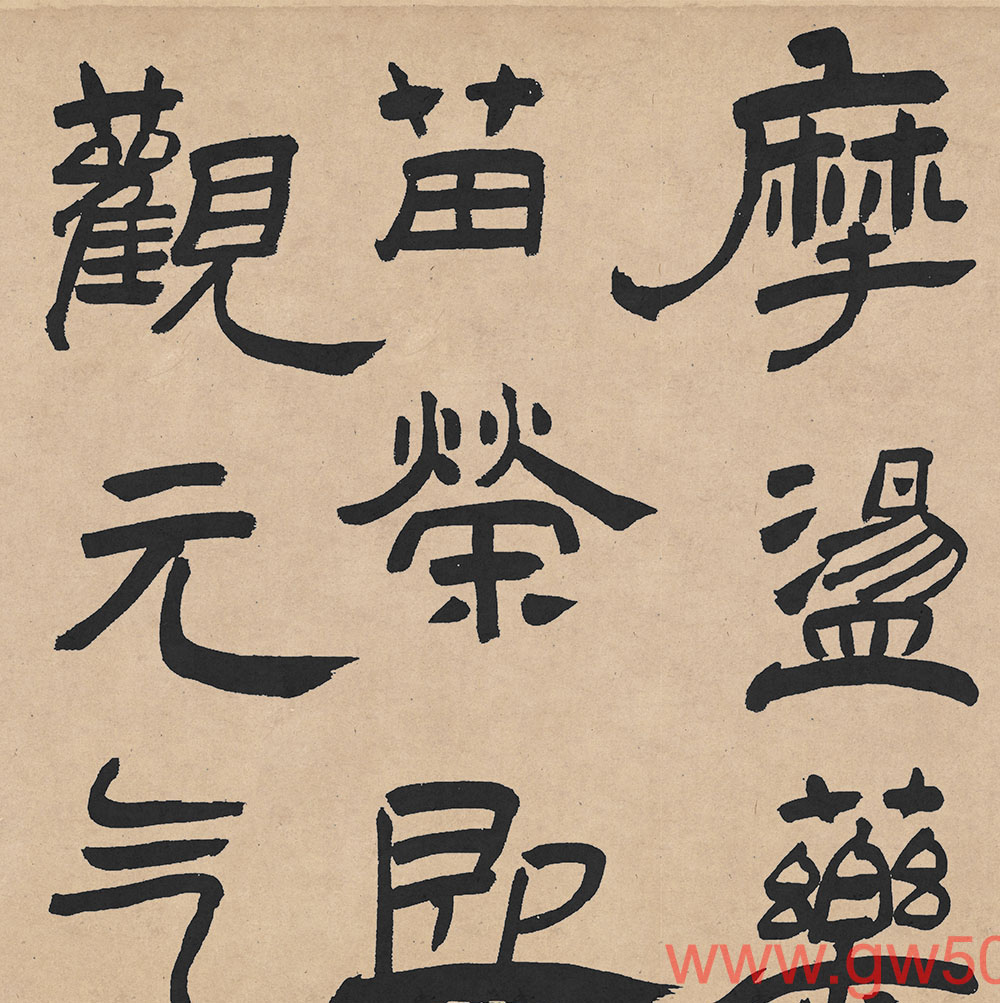 摩盪藥
苗榮即
觀元气
www.gw50